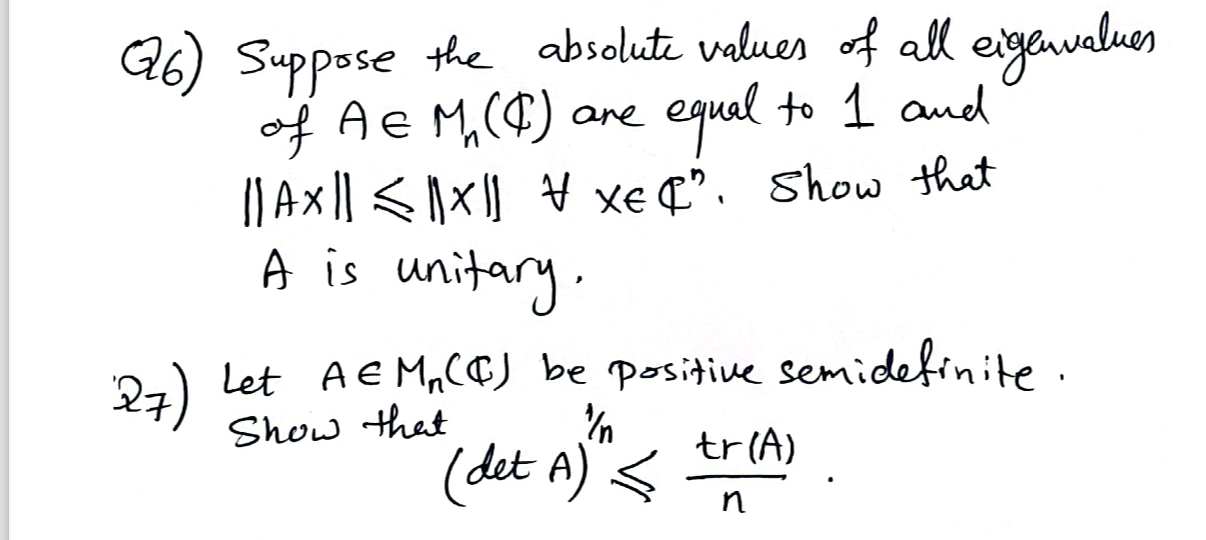 Q6) Suppose the absolute values of all eigenvalues
of A ∈ Mₙ(ℂ) are equal to 1 and
||Ax|| ≤ ||x|| ∀ x ∈ ℂⁿ. Show that
A is unitary.
Q7) Let A ∈ Mₙ(ℂ) be positive semidefinite.
Show that
(det A)^{1/n} ≤ tr(A)/n .